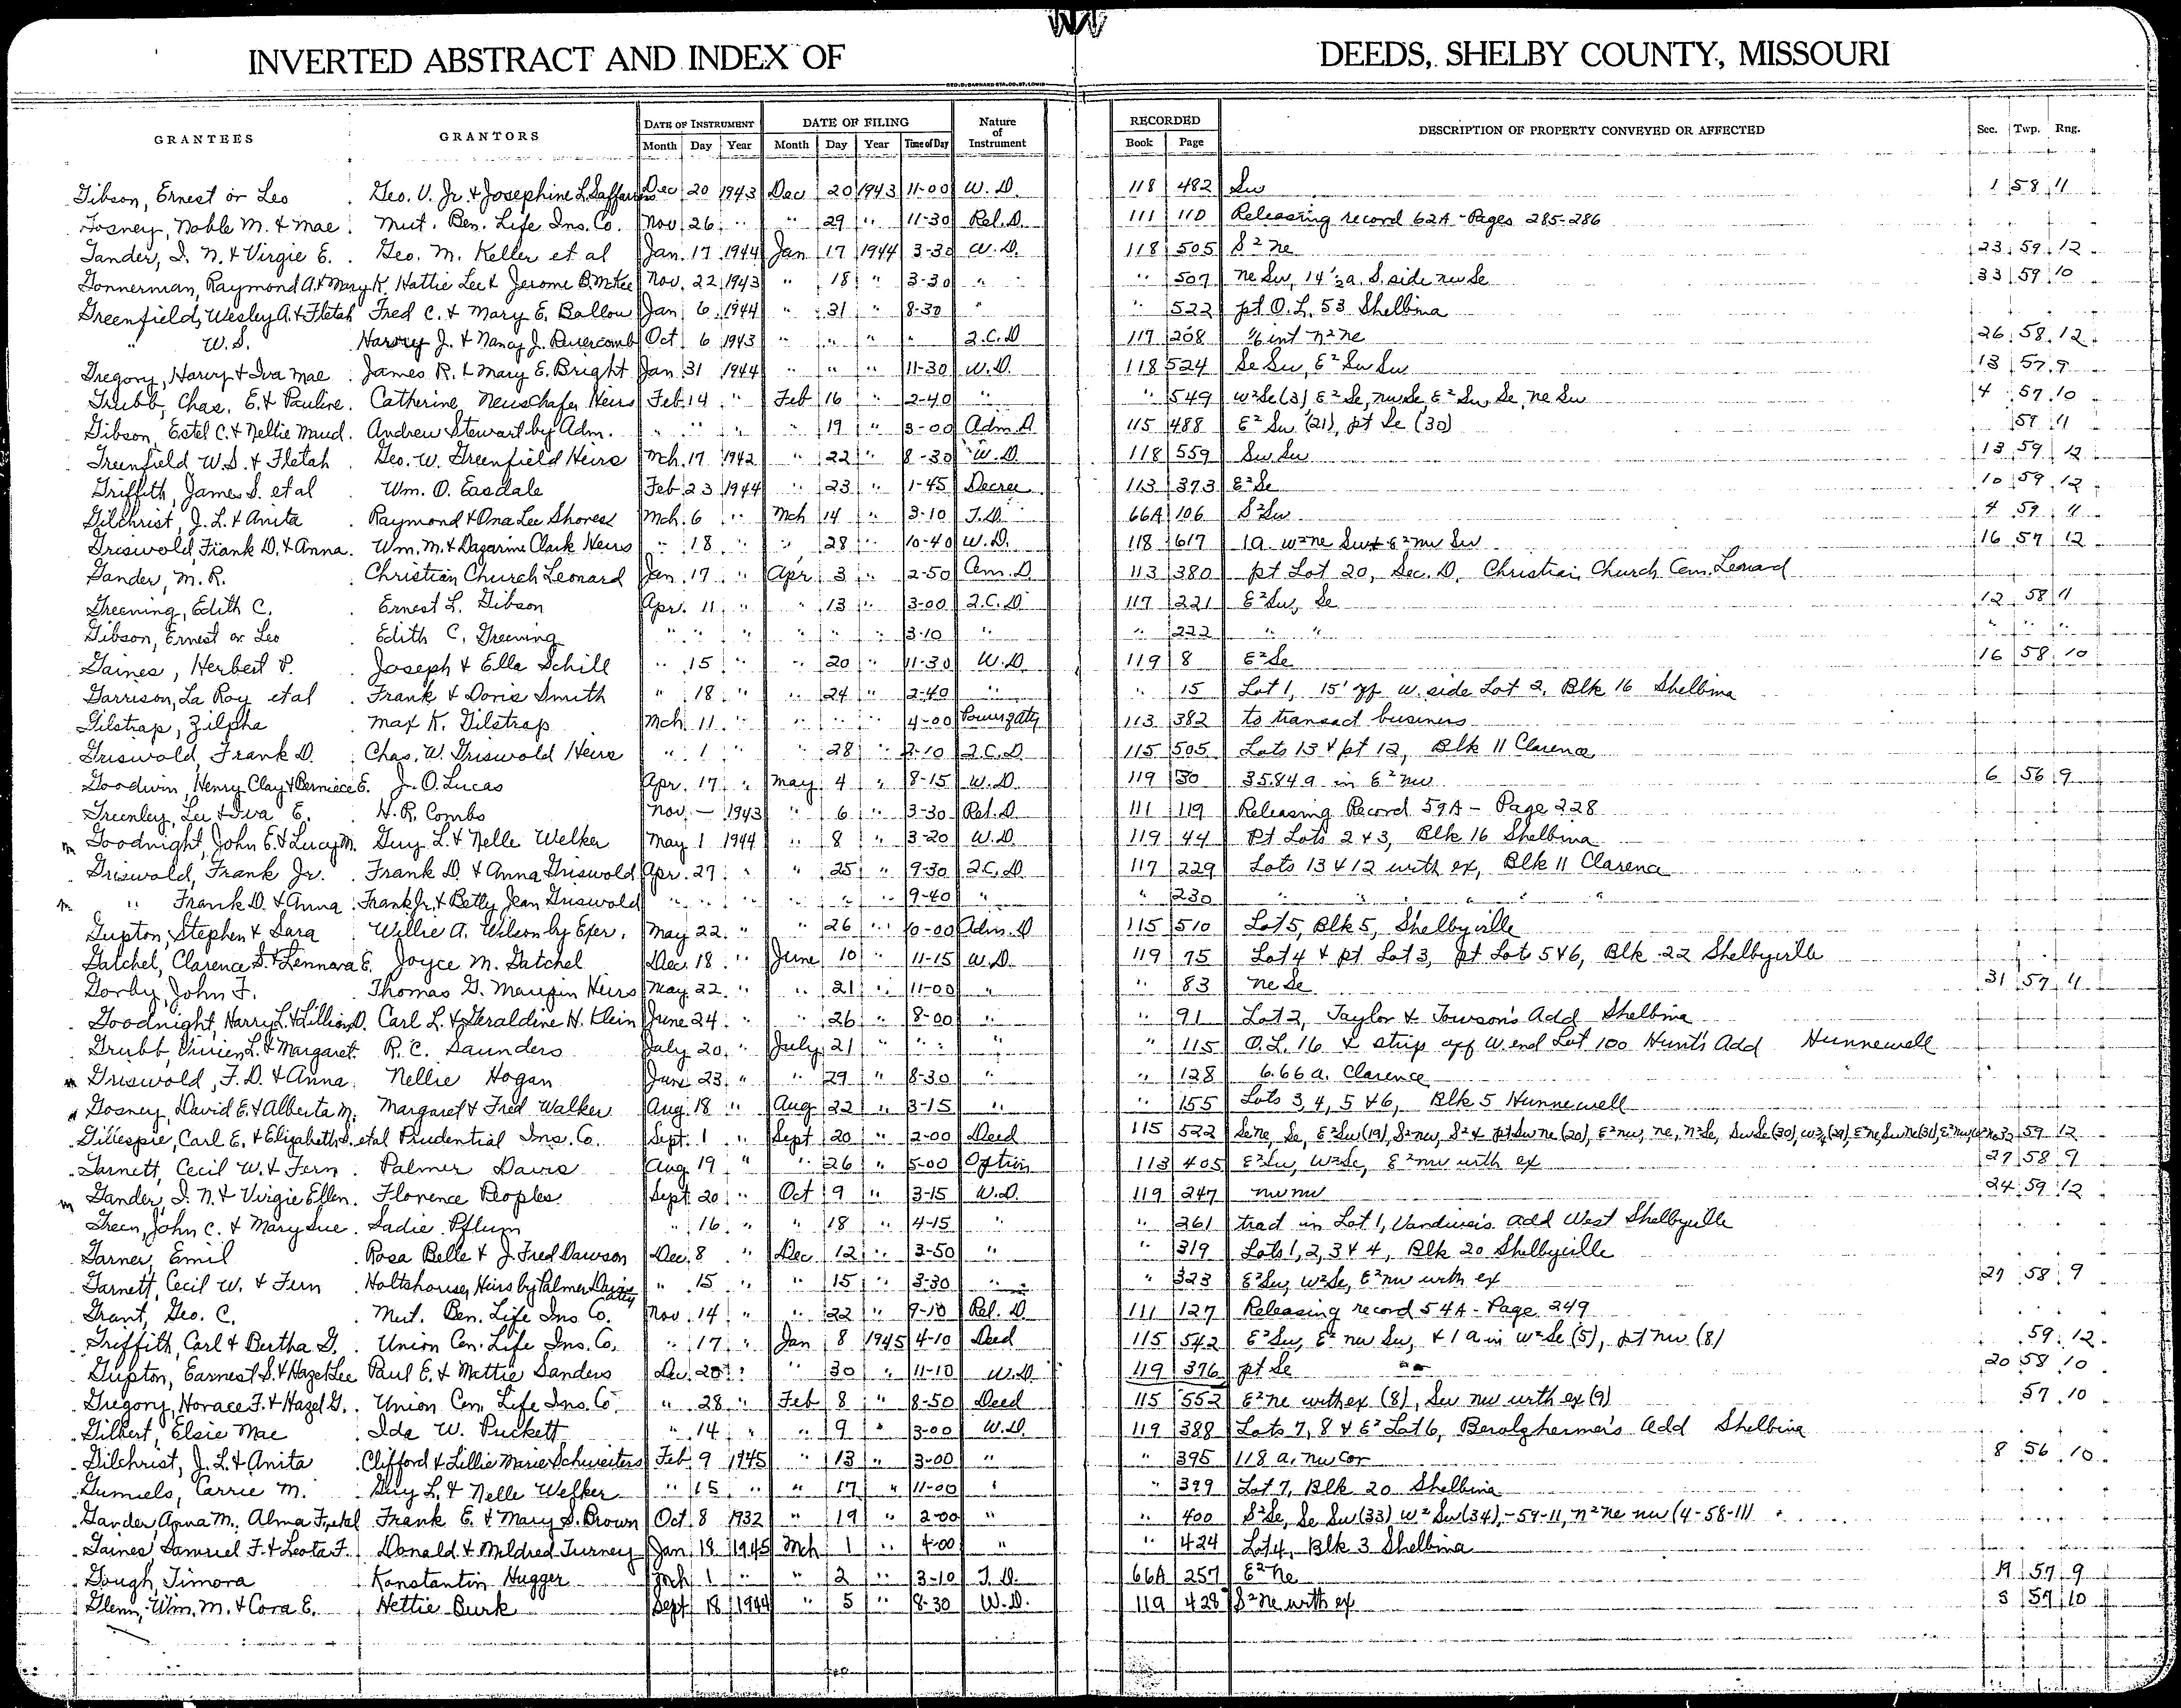 INVERTED ABSTRACT AND INDEX OF DEEDS, SHELBY COUNTY, MISSOURI
GEO. D. BARNARD STA. CO. ST. LOUIS
GRANTEES GRANTORS DATE OF INSTRUMENT DATE OF FILING Nature of Instrument RECORDED DESCRIPTION OF PROPERTY CONVEYED OR AFFECTED Sec. Twp. Rng.
Month Day Year Month Day Year Time of Day Book Page
Gibson, Ernest or Leo Geo. V. Jr. & Josephine L. Saffarans Dec 20 1943 Dec 20 1943 11-00 W. D. 118 482 Sw 1 58 11
Gosney, Noble M. & Mae Mut. Ben. Life Ins. Co. Nov 26 " " 29 " 11-30 Rel. D. 111 110 Releasing record 62A - Pages 285-286
Gander, I. N. & Virgie E. Geo. M. Keller et al Jan. 17 1944 Jan 17 1944 3-30 W. D. 118 505 S² Ne 23 59 12
Gonnerman, Raymond A. & Mary K. Hattie Lee & Jerome B. McKee Nov. 22 1943 " 18 " 3-30 " " 507 Ne Sw, 14½ a. S. side Nw Se 33 59 10
Greenfield, Wesley A. & Fletah Fred C. & Mary E. Ballow Jan 6 1944 " 31 " 8-30 " " 522 pt O. L. 53 Shelbina
" W. S. Harvy J. & Nancy J. Bevercomb Oct 6 1943 " " " " Q. C. D 117 208 1/6 int N² Ne 26 58 12
Gregory, Harvy & Iva Mae James R. & Mary E. Bright Jan 31 1944 " " " 11-30 W. D. 118 524 Se Sw, E² Sw Sw 13 57 9
Grubb, Chas. E. & Pauline Catherine Neuschafer Heirs Feb 14 " Feb 16 " 2-40 " " 549 W² Se (3) E² Se, Nw Se, E² Sw, Se, Ne Sw 4 57 10
Gibson, Estel C. & Nellie Maud Andrew Stewart by Adm. " " " " 19 " 3-00 Adm. D 115 488 E² Sw (21), pt Se (30) 59 11
Greenfield W. S. & Fletah Geo. W. Greenfield Heirs Mch. 17 1942 " 22 " 8-30 W. D. 118 559 Sw Sw 13 59 12
Griffith, James S. et al Wm. O. Easdale Feb 23 1944 " 23 " 1-45 Decree 113 373 E² Se 10 59 12
Gilchrist, J. L. & Anita Raymond & Ona Lee Shores Mch. 6 " Mch 14 " 3-10 T. D. 66A 106 S² Sw 4 59 11
Griswold Frank D. & Anna Wm. M. & Dagarine Clark Heirs " 18 " " 28 " 10-40 W. D. 118 617 1a. W² Ne Sw & E² Nw Sw 16 57 12
Gander, M. R. Christian Church Leonard Jan. 17 " Apr 3 " 2-50 Cem. D 113 380 pt Lot 20, Sec. D, Christian Church Cem. Leonard
Greening, Edith C. Ernest L. Gibson Apr. 11 " " 13 " 3-00 Q. C. D. 117 221 E² Sw, Se 12 58 11
Gibson, Ernest or Leo Edith C. Greening " " " " " " 3-10 " " 222 " " " " "
Gaines, Herbert P. Joseph & Ella Schill " 15 " " 20 " 11-30 W. D. 119 8 E² Se 16 58 10
Garrison, La Roy et al Frank & Doris Smith " 18 " " 24 " 2-40 " " 15 Lot 1, 15' off W. side Lot 2, Blk 16 Shelbina
Gilstrap, Zilpha Max K. Gilstrap Mch. 11 " " " " 4-00 Power of Atty 113 382 to transact business
Griswold, Frank D. Chas. W. Griswold Heirs " 1 " " 28 " 2-10 Q. C. D. 115 505 Lots 13 & pt 12, Blk 11 Clarence
Goodwin Henry Clay & Berniece E. J. O. Lucas Apr. 17 " May 4 " 8-15 W. D. 119 30 35.84 a in E² Nw 6 56 9
Greenley, Lee & Iva E. H. R. Combs Nov. — 1943 " 6 " 3-30 Rel. D. 111 119 Releasing Record 59A - Page 228
Goodnight, John E. & Lucy M. Guy L. & Nelle Welker May 1 1944 " 8 " 3-20 W. D. 119 44 Pt Lots 2 & 3, Blk 16 Shelbina
Griswold, Frank Jr. Frank D. & Anna Griswold Apr. 27 " " 25 " 9-30 Q. C. D. 117 229 Lots 13 & 12 with ex, Blk 11 Clarence
" Frank D. & Anna Frank Jr. & Betty Jean Griswold " " " " " " 9-40 " " 230 " " " " "
Gupton, Stephen & Sara Willie A. Wilson by Exer. May 22 " " 26 " 10-00 Adm. D 115 510 Lot 5, Blk 5, Shelbyville
Gatchel, Clarence S. & Lennora E. Joyce M. Gatchel Dec. 18 " June 10 " 11-15 W. D. 119 75 Lot 4 & pt Lot 3, pt Lot 5 & 6, Blk 22 Shelbyville
Gorby, John F. Thomas G. Maupin Heirs May 22 " " 21 " 11-00 " " 83 Ne Se 31 57 11
Goodnight, Harry L. & Lillian D. Carl L. & Geraldine H. Klein June 24 " " 26 " 8-00 " " 91 Lot 2, Taylor & Towson's Add Shelbina
Grubb, Vivien L. & Margaret R. C. Saunders July 20 " July 21 " " " " 115 O. L. 16 & strip off W. end Lot 100 Hunt's Add Hunnewell
Griswold, F. D. & Anna Nellie Hogan June 23 " " 29 " 8-30 " " 128 6.66 a. Clarence
Gosney, David E. & Alberta M. Margaret & Fred Walker Aug 18 " Aug 22 " 3-15 " " 155 Lots 3, 4, 5 & 6, Blk 5 Hunnewell
Gillespie, Carl E. & Elizabeth S. et al Prudential Ins. Co. Sept. 1 " Sept 20 " 2-00 Deed 115 522 Se Ne, Se, E² Sw (19), S² Nw, S² & pt Sw Ne (20), E² Nw, Ne, N² Se, Sw Se (30), (29), E² Ne, Sw Ne (31), E² Nw, 59 12
Garnett, Cecil W. & Fern Palmer Davis Aug 19 " " 26 " 5-00 Option 113 405 E² Sw, W² Se, E² Nw with ex 27 58 9
Gander, I. N. & Virgie Ellen Florence Peoples Sept. 20 " Oct 9 " 3-15 W. D. 119 247 Nw Nw 24 59 12
Green, John C. & Mary Sue Sadie Pflum " 16 " " 18 " 4-15 " " 261 tract in Lot 1, Vandiver's Add West Shelbyville
Garner, Emil Rosa Belle & J. Fred Dawson Dec. 8 " Dec 12 " 3-50 " " 319 Lots 1, 2, 3 & 4, Blk 20 Shelbyville
Garnett, Cecil W. & Fern Holtshouser Heirs by Palmer Davis Atty " 15 " " 15 " 3-30 " " 323 E² Sw, W² Se, E² Nw with ex 27 58 9
Grant, Geo. C. Mut. Ben. Life Ins Co. Nov. 14 " " 22 " 9-10 Rel. D. 111 127 Releasing record 54A - Page 249
Griffith, Carl & Bertha G. Union Cen. Life Ins. Co. " 17 " Jan 8 1945 4-10 Deed 115 542 E² Sw, E² Nw Sw, & 1 a in W² Se (5), pt Nw (8) 59 12
Gupton, Earnest S. & Hazel Lee Paul E. & Mattie Sanders Dec. 20 " " 30 " 11-10 W. D. 119 376 pt Se 20 58 10
Gregory, Horace F. & Hazel G. Union Cen. Life Ins. Co. " 28 " Feb 8 " 8-50 Deed 115 552 E² Ne with ex (8), Sw Nw with ex (9) 57 10
Gilbert, Elsie Mae Ida W. Puckett " 14 " " 9 " 3-00 W. D. 119 388 Lots 7, 8 & E² Lot 6, Add Shelbina
Gilchrist, J. L. & Anita Clifford & Lillie Marie Schwieters Feb 9 1945 " 13 " 3-00 " " 395 118 a. Nw cor 8 56 10
Gumiels, Carrie M. Guy L. & Nelle Welker " 15 " " 17 " 11-00 " " 399 Lot 7, Blk 20 Shelbina
Gander, Anna M., Alma F. et al Frank E. & Mary S. Brown Oct 8 1932 " 19 " 2-00 " " 400 S² Se, Se Sw (33) W² Sw (34), -59-11, N² Ne Nw (4-58-11)
Gaines Samuel F. & Leota F. Donald & Mildred Turney Jan 18 1945 Mch 1 " 4-00 " " 424 Lot 4, Blk 3 Shelbina
Gough, Timora Konstantin Hugger Mch 1 " " 2 " 3-10 T. D. 66A 257 E² Ne 19 57 9
Glenn, Wm. M. & Cora E. Hettie Burk Sept 18 1944 " 5 " 8-30 W. D. 119 428 S² Ne with ex 3 57 10